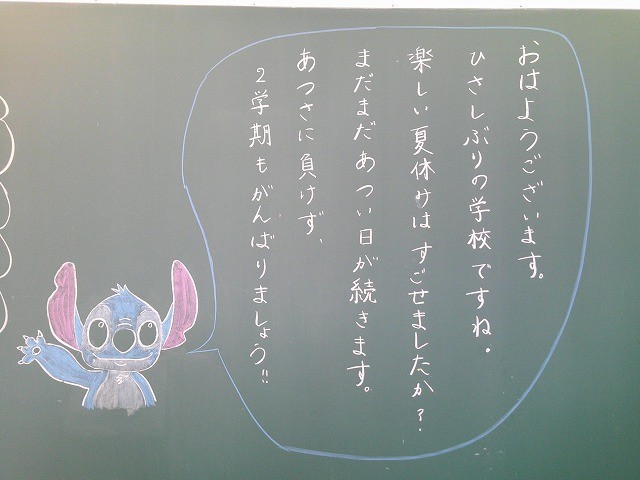 おはようございます。
ひさしぶりの学校ですね。
楽しい夏休みはすごせましたか？
まだまだあつい日が続きます。
あつさに負けず、
2学期もがんばりましょう!!